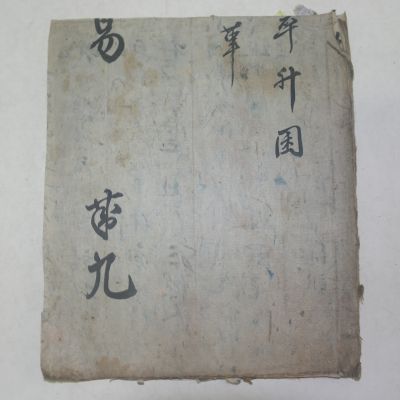 萃升困
革
易 第九